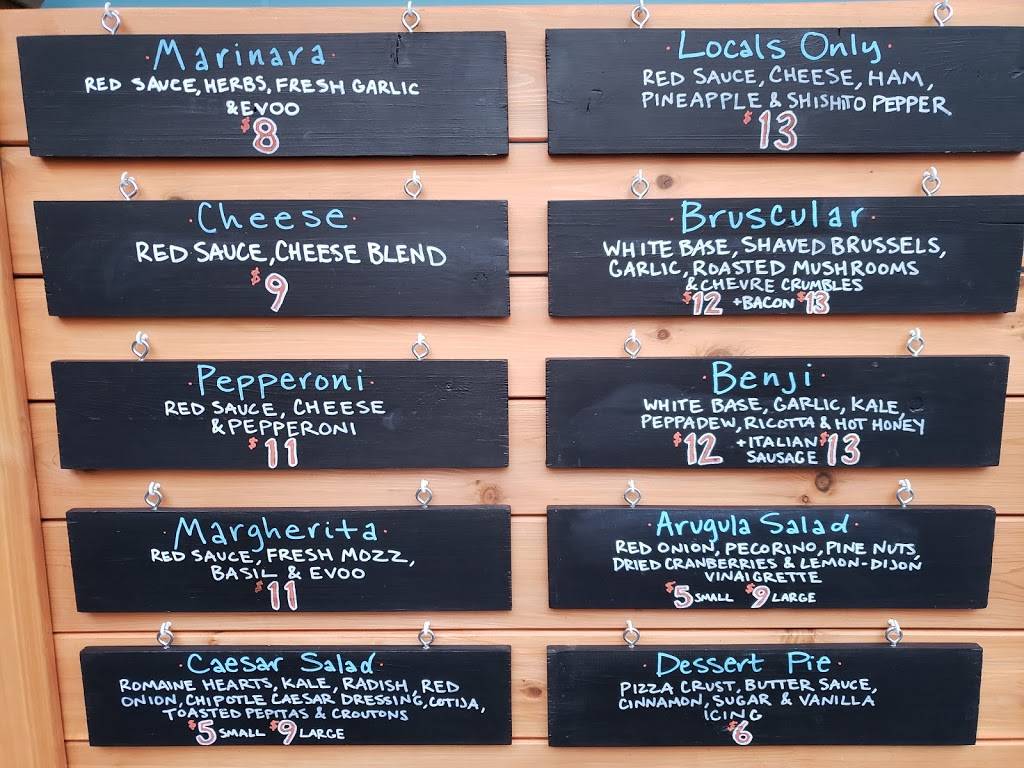 ·Marinara·
RED SAUCE, HERBS, FRESH GARLIC
& EVOO
$8
·Cheese·
RED SAUCE, CHEESE BLEND
$9
·Pepperoni·
RED SAUCE, CHEESE
& PEPPERONI
$11
·Margherita·
RED SAUCE, FRESH MOZZ,
BASIL & EVOO
$11
·Caesar Salad·
ROMAINE HEARTS, KALE, RADISH, RED
ONION, CHIPOTLE CAESAR DRESSING, COTIJA,
TOASTED PEPITAS & CROUTONS
$5 SMALL $9 LARGE
·Locals Only·
RED SAUCE, CHEESE, HAM,
PINEAPPLE & SHISHITO PEPPER
$13
·Bruscular·
WHITE BASE, SHAVED BRUSSELS,
GARLIC, ROASTED MUSHROOMS
& CHEVRE CRUMBLES
$12 +BACON $13
·Benji·
WHITE BASE, GARLIC, KALE,
PEPPADEW, RICOTTA & HOT HONEY
$12 +ITALIAN SAUSAGE $13
·Arugula Salad·
RED ONION, PECORINO, PINE NUTS,
DRIED CRANBERRIES & LEMON-DIJON
VINAIGRETTE
$5 SMALL $9 LARGE
·Dessert Pie·
PIZZA CRUST, BUTTER SAUCE,
CINNAMON, SUGAR & VANILLA
ICING
$6